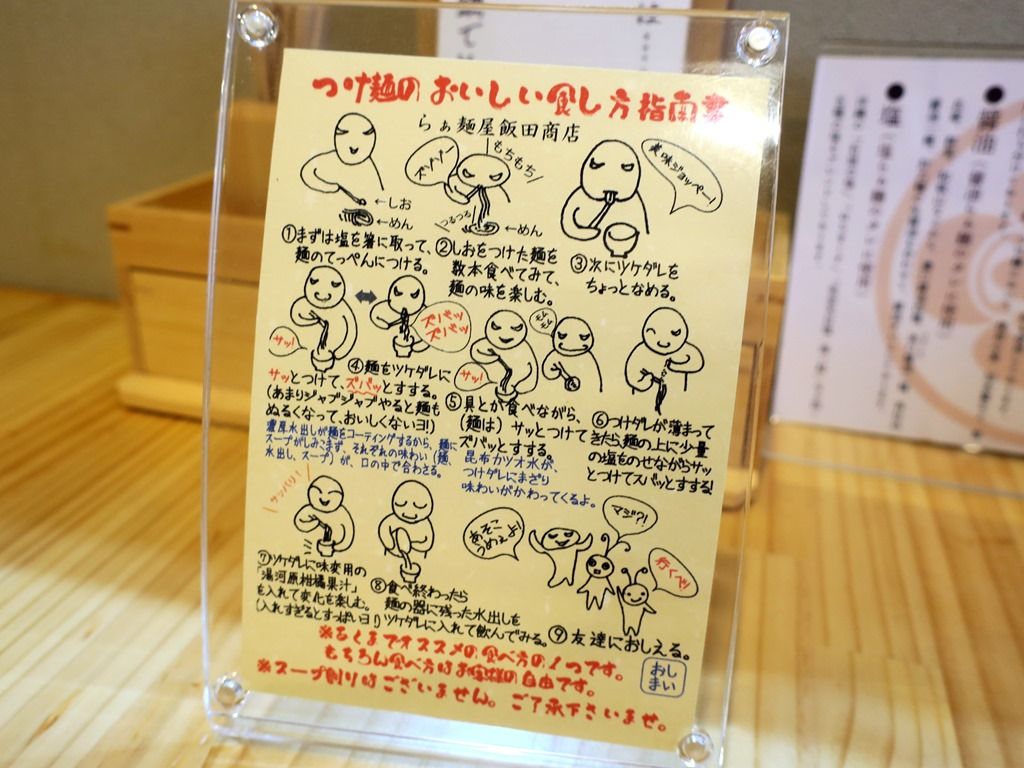 つけ麺のおいしい食し方指南書
らぁ麺屋飯田商店
←しお
←めん
ズゾゾー
もちもち
つるつる
←めん
美味ジョッペー!
①まずは塩を箸に取って、
麺のてっぺんにつける。
②しおをつけた麺を
数本食べてみて、
麺の味を楽しむ。
③次にツケダレを
ちょっとなめる。
サッ!
ズバッ
ズバッ
④麺をツケダレに
サッとつけて、ズバッとすする。
(あまりジャブジャブやると麺も
ぬるくなって、おいしくないヨ!)
濃厚水出しが麺をコーティングするから、麺に
スープがしみこまず、それぞれの味わい(麺、
水出し、スープ)が、口の中で合わさる。
サッ!
モグ
モグ
⑤具とか食べながら、
(麺は)サッとつけて
ズバッとすする。
昆布カツオ水が、
つけダレにまざり
味わいがかわってくるよ。
⑥つけダレが薄まって
きたら、麺の上に少量
の塩をのせながらサッ
とつけてズバッとすする!
サッパリ!
⑦ツケダレに味変用の
「湯河原柑橘果汁」
を入れて変化を楽しむ。
(入れすぎるとすっぱいヨ!)
⑧食べ終わったら
麺の器に残った水出しを
ツケダレに入れて飲んでみる。
あそこ
うめぇよ!
マジ?!
行くべ!
⑨友達におしえる。
※あくまでオススメの食べ方の1つです。
もちろん食べ方はお客様の自由です。
※スープ割りはございません。ご了承下さいませ。
おし
まい
●醤油
●塩